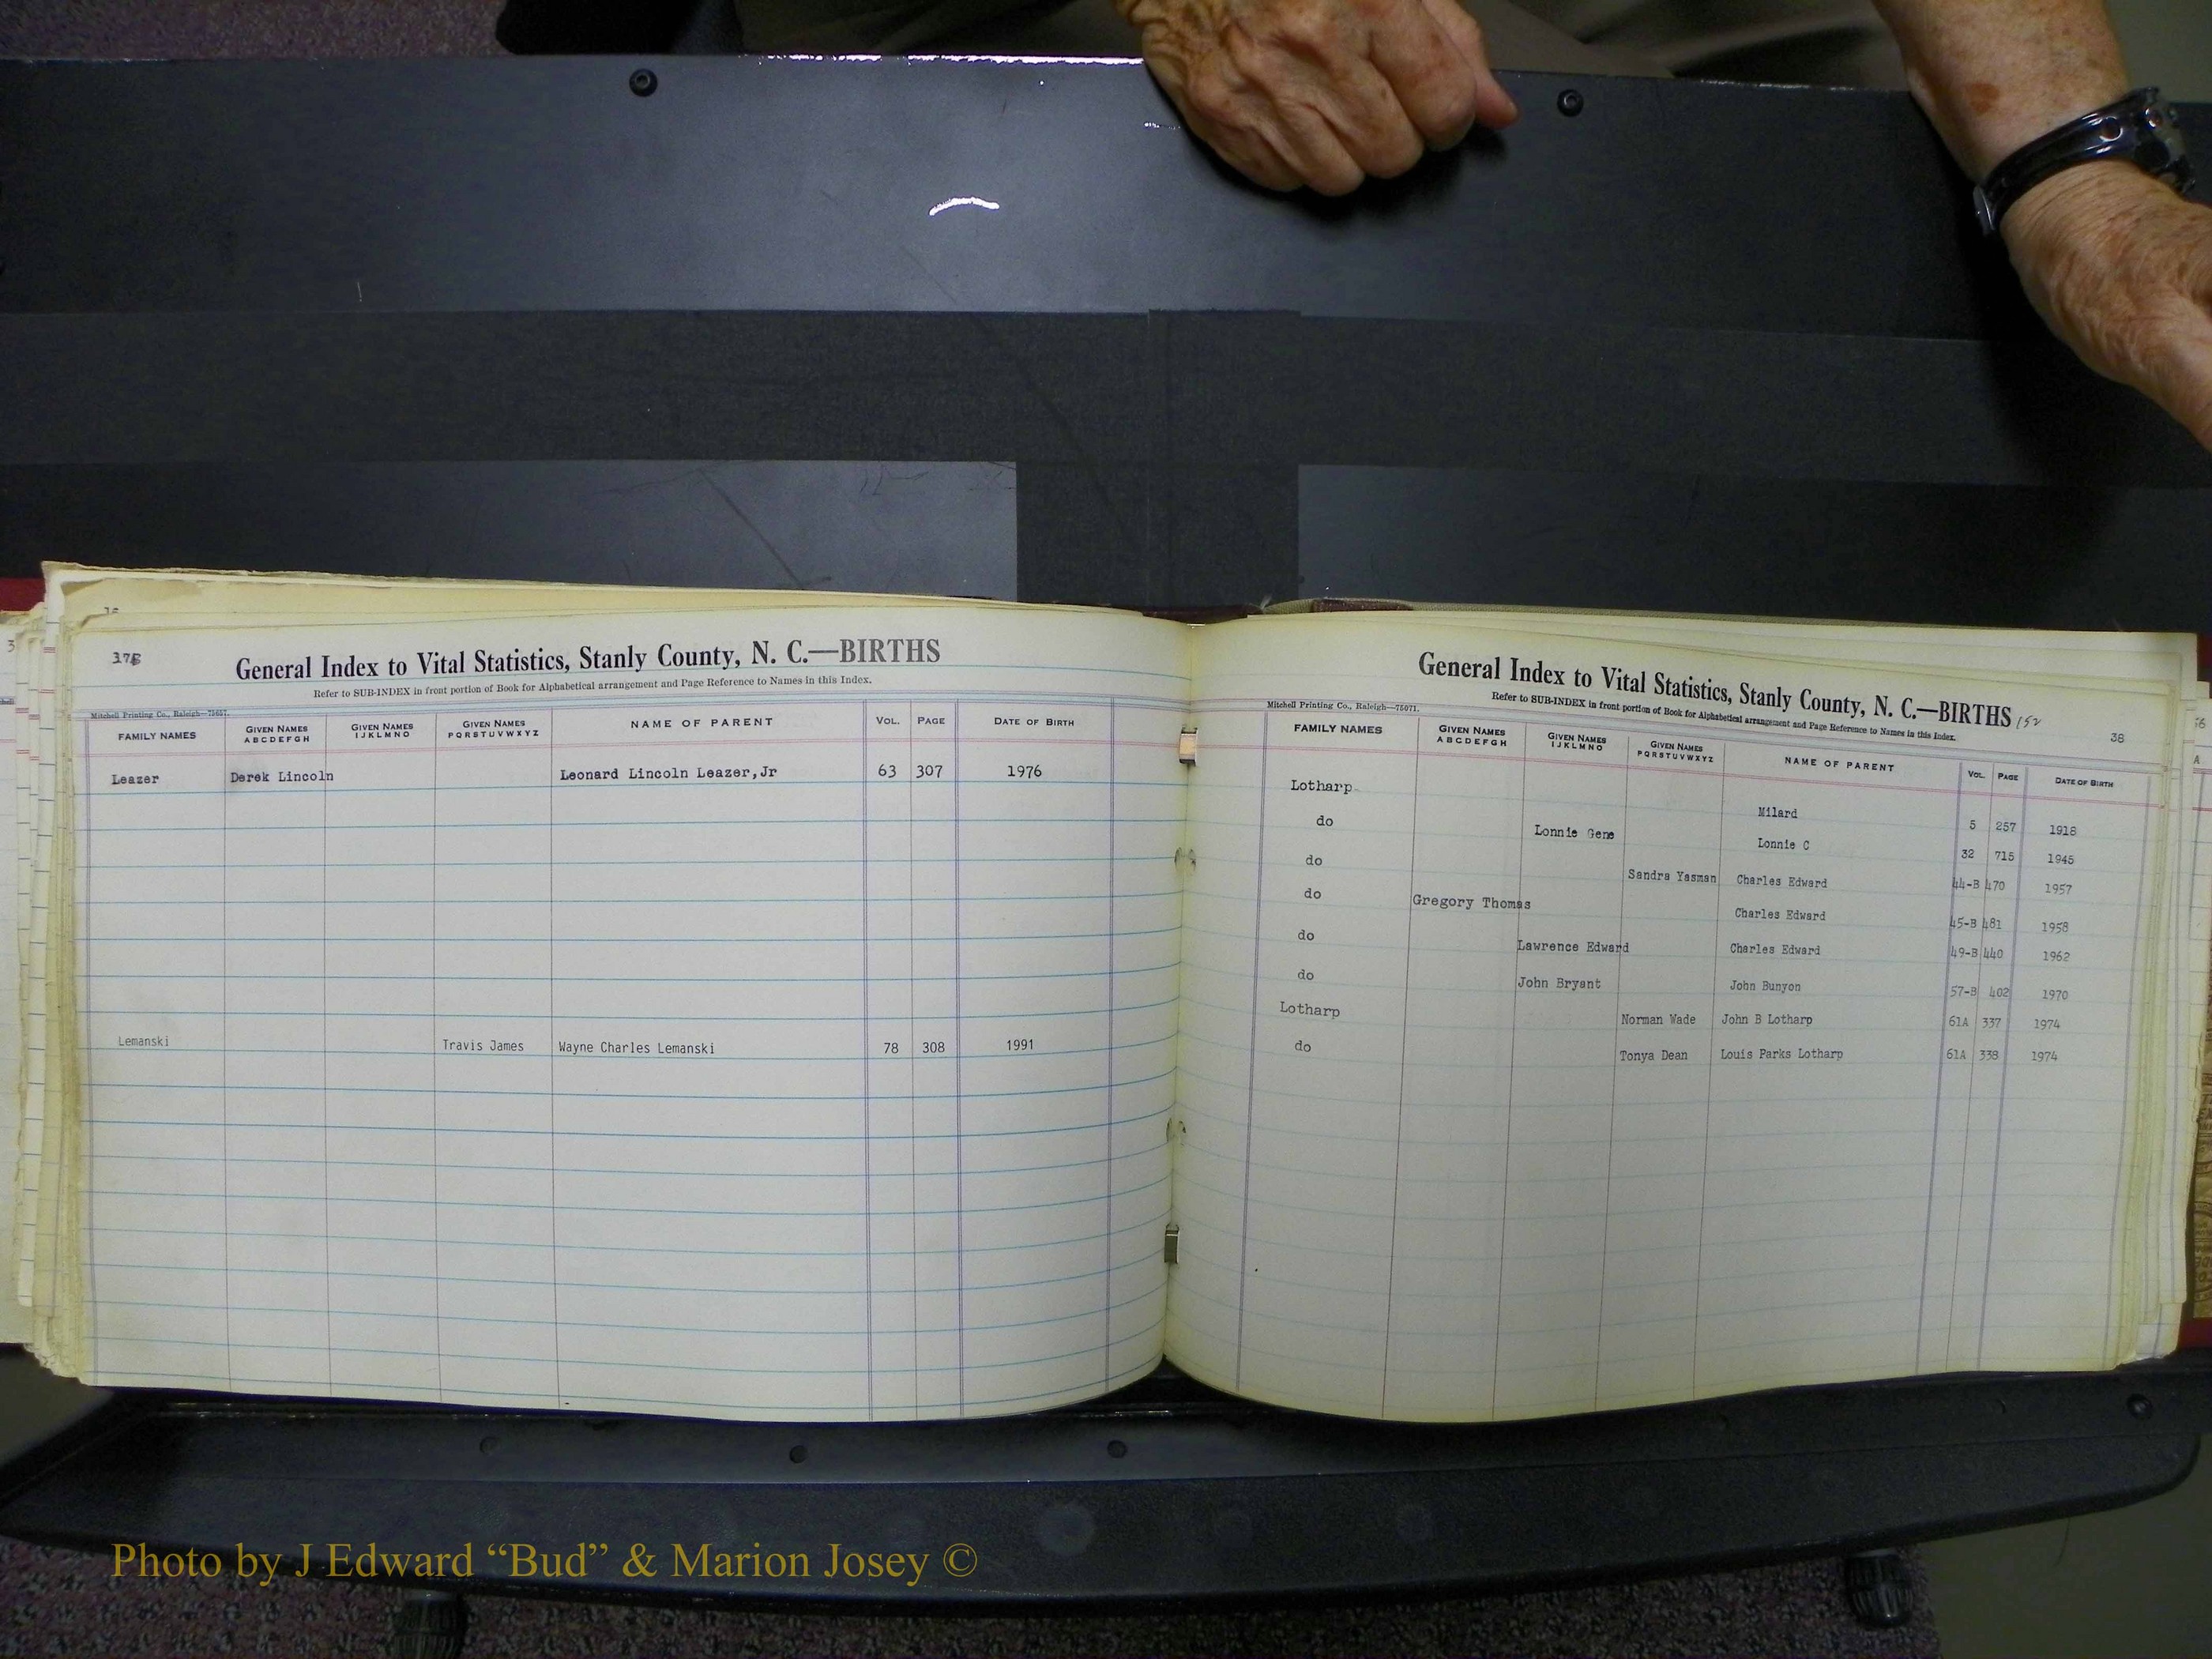 37B
General Index to Vital Statistics, Stanly County, N. C.—BIRTHS
Refer to SUB-INDEX in front portion of Book for Alphabetical arrangement and Page Reference to Names in this Index.
Mitchell Printing Co., Raleigh—75657.
FAMILY NAMES GIVEN NAMES ABCDEFGH GIVEN NAMES IJKLMNO GIVEN NAMES PQRSTUVWXYZ NAME OF PARENT VOL. PAGE DATE OF BIRTH
Leazer Derek Lincoln Leonard Lincoln Leazer,Jr 63 307 1976
Lemanski Travis James Wayne Charles Lemanski 78 308 1991
General Index to Vital Statistics, Stanly County, N. C.—BIRTHS 152
Refer to SUB-INDEX in front portion of Book for Alphabetical arrangement and Page Reference to Names in this Index.
Mitchell Printing Co., Raleigh—75071.
38
FAMILY NAMES GIVEN NAMES ABCDEFGH GIVEN NAMES IJKLMNO GIVEN NAMES PQRSTUVWXYZ NAME OF PARENT VOL. PAGE DATE OF BIRTH
Lotharp Milard 5 257 1918
do Lonnie Gene Lonnie C 32 715 1945
do Sandra Yasman Charles Edward 44-B 470 1957
do Gregory Thomas Charles Edward 45-B 481 1958
do Lawrence Edward Charles Edward 49-B 440 1962
do John Bryant John Bunyon 57-B 402 1970
Lotharp Norman Wade John B Lotharp 61A 337 1974
do Tonya Dean Louis Parks Lotharp 61A 338 1974
Photo by J Edward “Bud” & Marion Josey ©